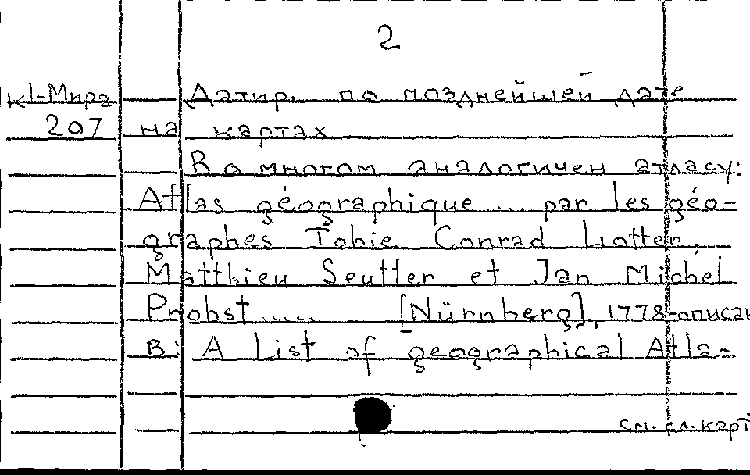 2
к1-Мира Датир. по позднейшей дате
207 на картах
Во многом аналогичен атласу:
Atlas géographique ... par les géo-
graphes Tobie Conrad Lotter,
Matthieu Seutter et Jan Michel
Probst ..... [Nürnberg], 1778-описан
в: A List of geographical Atla-
см. сл. карт